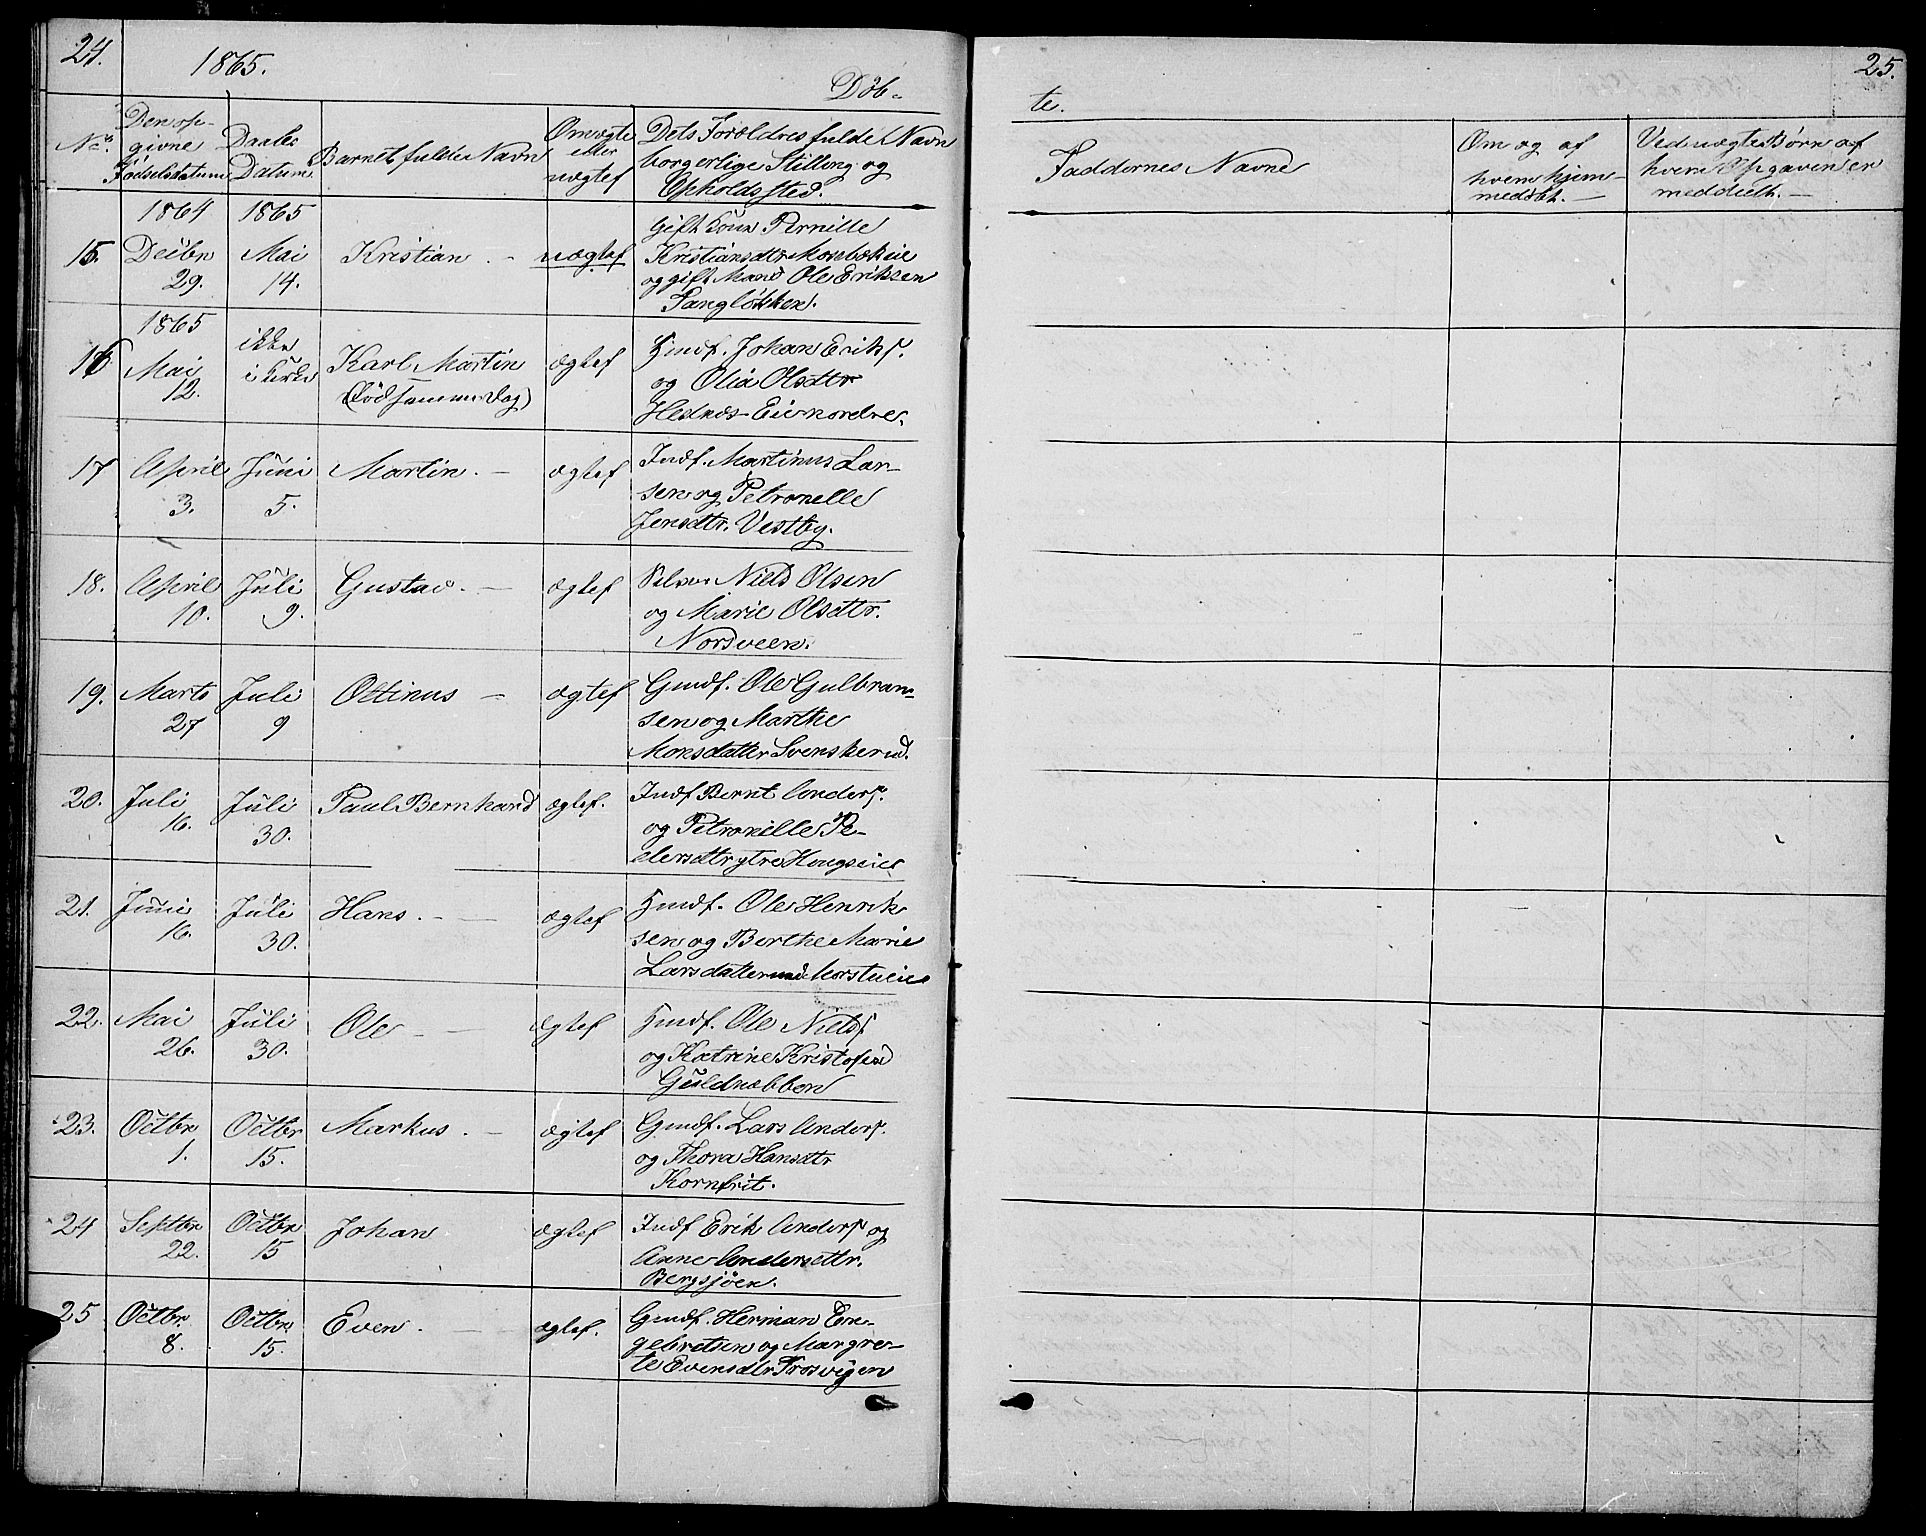 24.
1865.
Døb-
No.
Den op-
givne
Fødselsdatum
Daabs
Datum
Barnets fulde Navn
Om ægte
eller
uægtef
Dets Forældres fulde Navn
borgerlige Stilling og
Opholdssted.
15.
1864
Decbr
29.
1865
Mai
14.
Kristian. -
uægtef
Gift Kone Pernille
Kristiansdtr Mosebækeie
og gift Mand Ole Eriksen
Sangløkken.
16
1865
Mai
12.
ikke
i Kirke
Karl Martin
(død samme Dag)
ægtef
Hmdf. Johan Eriks.
og Olia Olsdtr
Hednæs-Eie nordre.
17
April
3.
Juni
5.
Martin. -
ægtef
Indf. Martinus Lar-
sen og Petronelle
Jensdtr. Vestby.
18.
April
10.
Juli
9.
Gustav. -
ægtef
Selver Niels Olsen
og Marie Olsdtr.
Norsveen.
19.
Marts
27
Juli
9
Ottinus -
ægtef
Gmdf. Ole Gulbran-
sen og Marthe
Monsdatter Svenskerud.
20.
Juli
16.
Juli
30.
Paul Bernhard
ægtef.
Indf Bernt Anders.
og Petronille Pe-
dersdtr ytre Hougseie
21.
Junie
16.
Juli
30.
Hans. -
ægtef
Hmdf. Ole Henrik
sen og Berthe Marie
Larsdatter Morstueie
22.
Mai
26.
Juli
30.
Ole - -
ægtef
Hmdf. Ole Niels
og Katrine Kristofersd
Guldnæbben
23.
Octbr
1.
Octbr
15.
Markus. -
ægtef
Gmdf. Lars Anders.
og Thora Hansdtr
Kornfrit.
24
Septbr
22.
Octbr
15
Johan
ægtef
Indf Erik Anders og
Anne Andersdtr.
Bergsjøen.
25
Octbr.
8.
Octbr.
15.
Even. -
ægtef.
Gmdf. Herman En-
gebretsen og Margre-
te Evensdtr Frosvigen
25.
te.
Faddernes Navne
Om og af
hvem hjem-
medøbt. -
Ved uægte Børn af
hvem Opgaven er
meddeelt. -